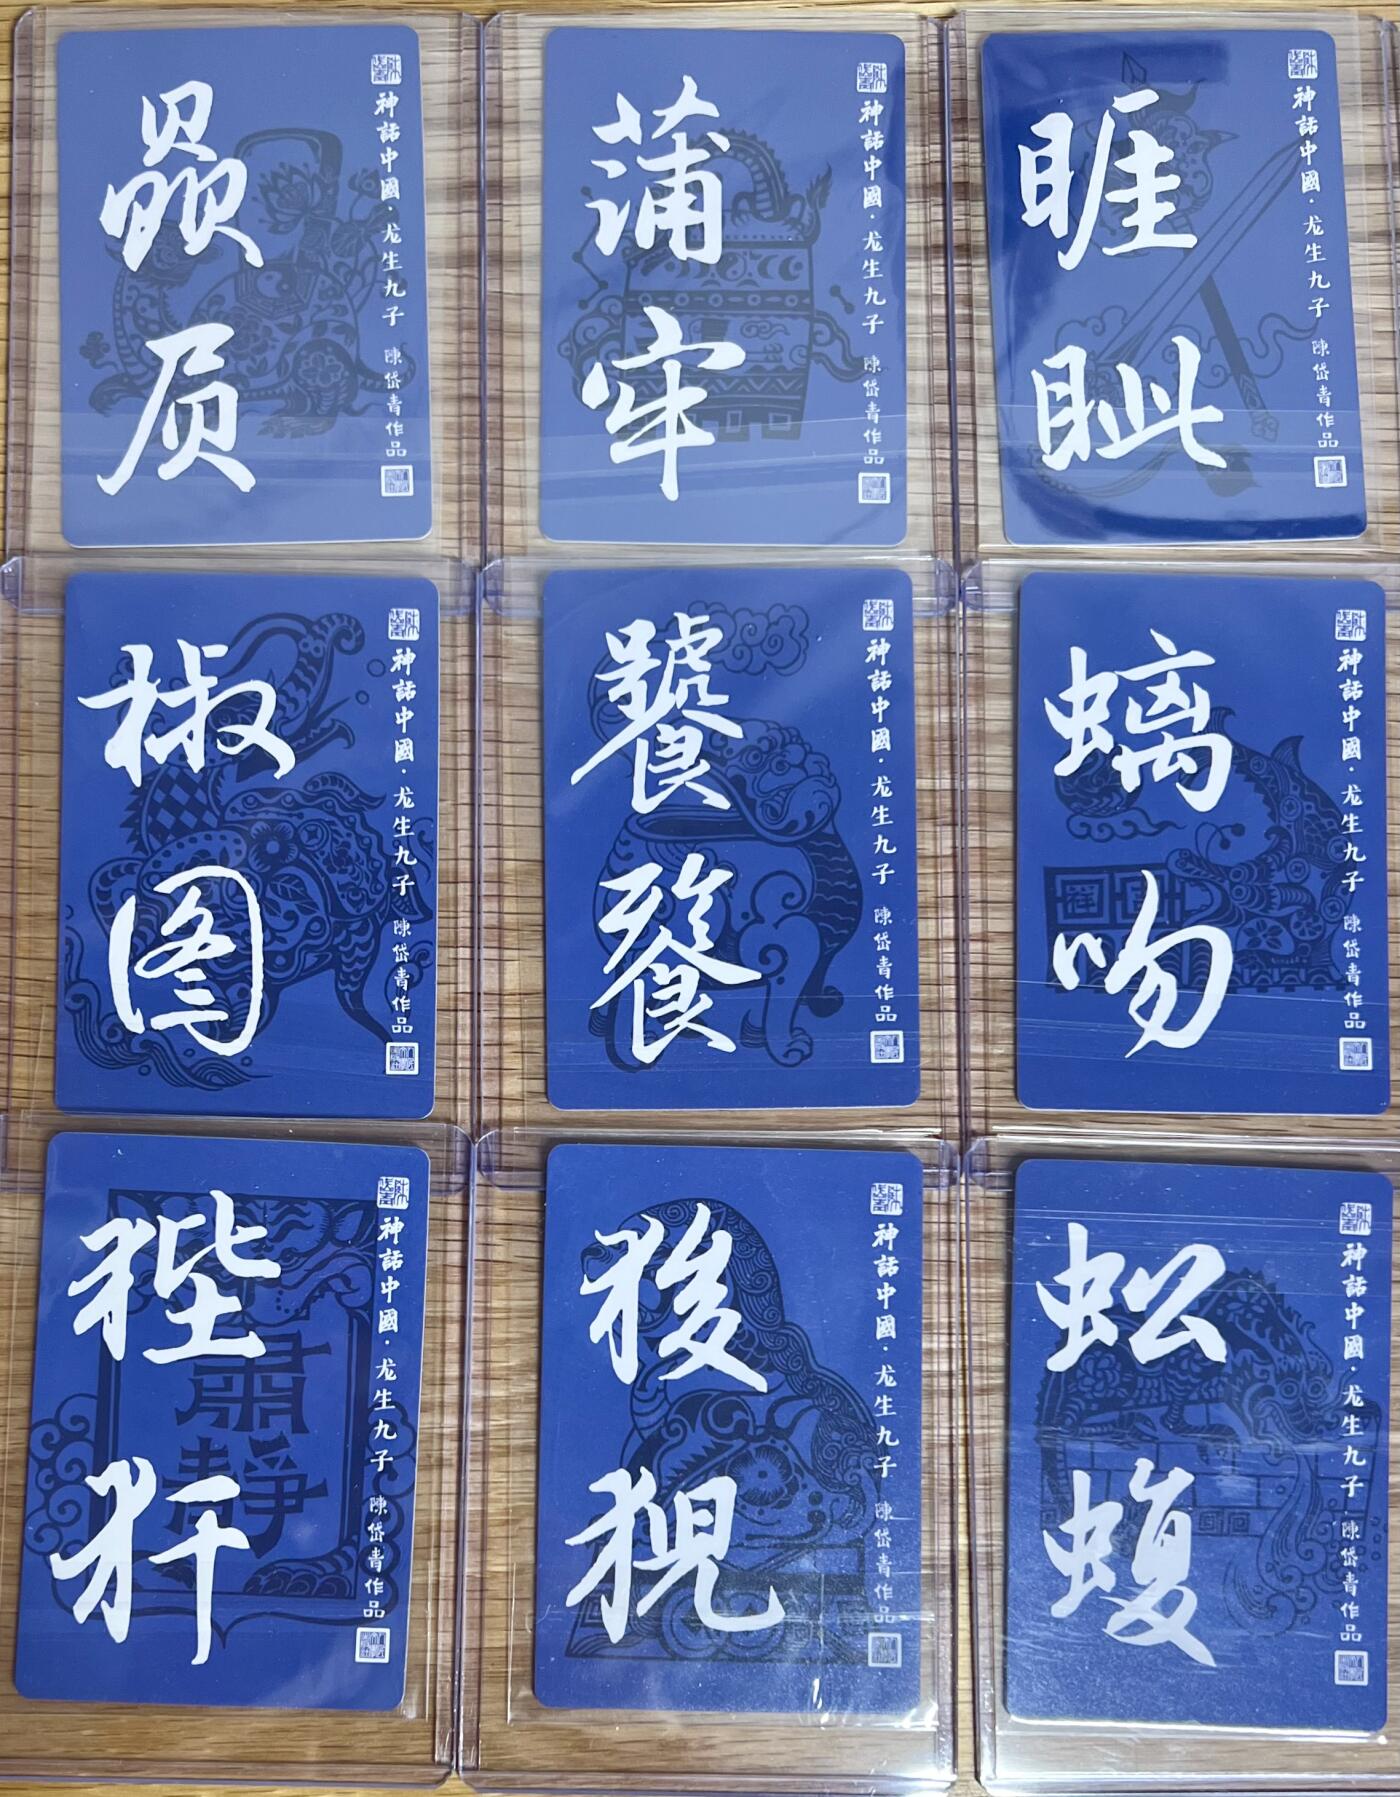 赑屃
神話中國·龙生九子 陳岱青作品
蒲牢
神話中國·龙生九子 陳岱青作品
睚眦
神話中國·龙生九子 陳岱青作品
椒图
神話中國·龙生九子 陳岱青作品
饕餮
神話中國·龙生九子 陳岱青作品
螭吻
神話中國·龙生九子 陳岱青作品
狴犴
肅靜
神話中國·龙生九子 陳岱青作品
狻猊
神話中國·龙生九子 陳岱青作品
蚣蝮
神話中國·龙生九子 陳岱青作品